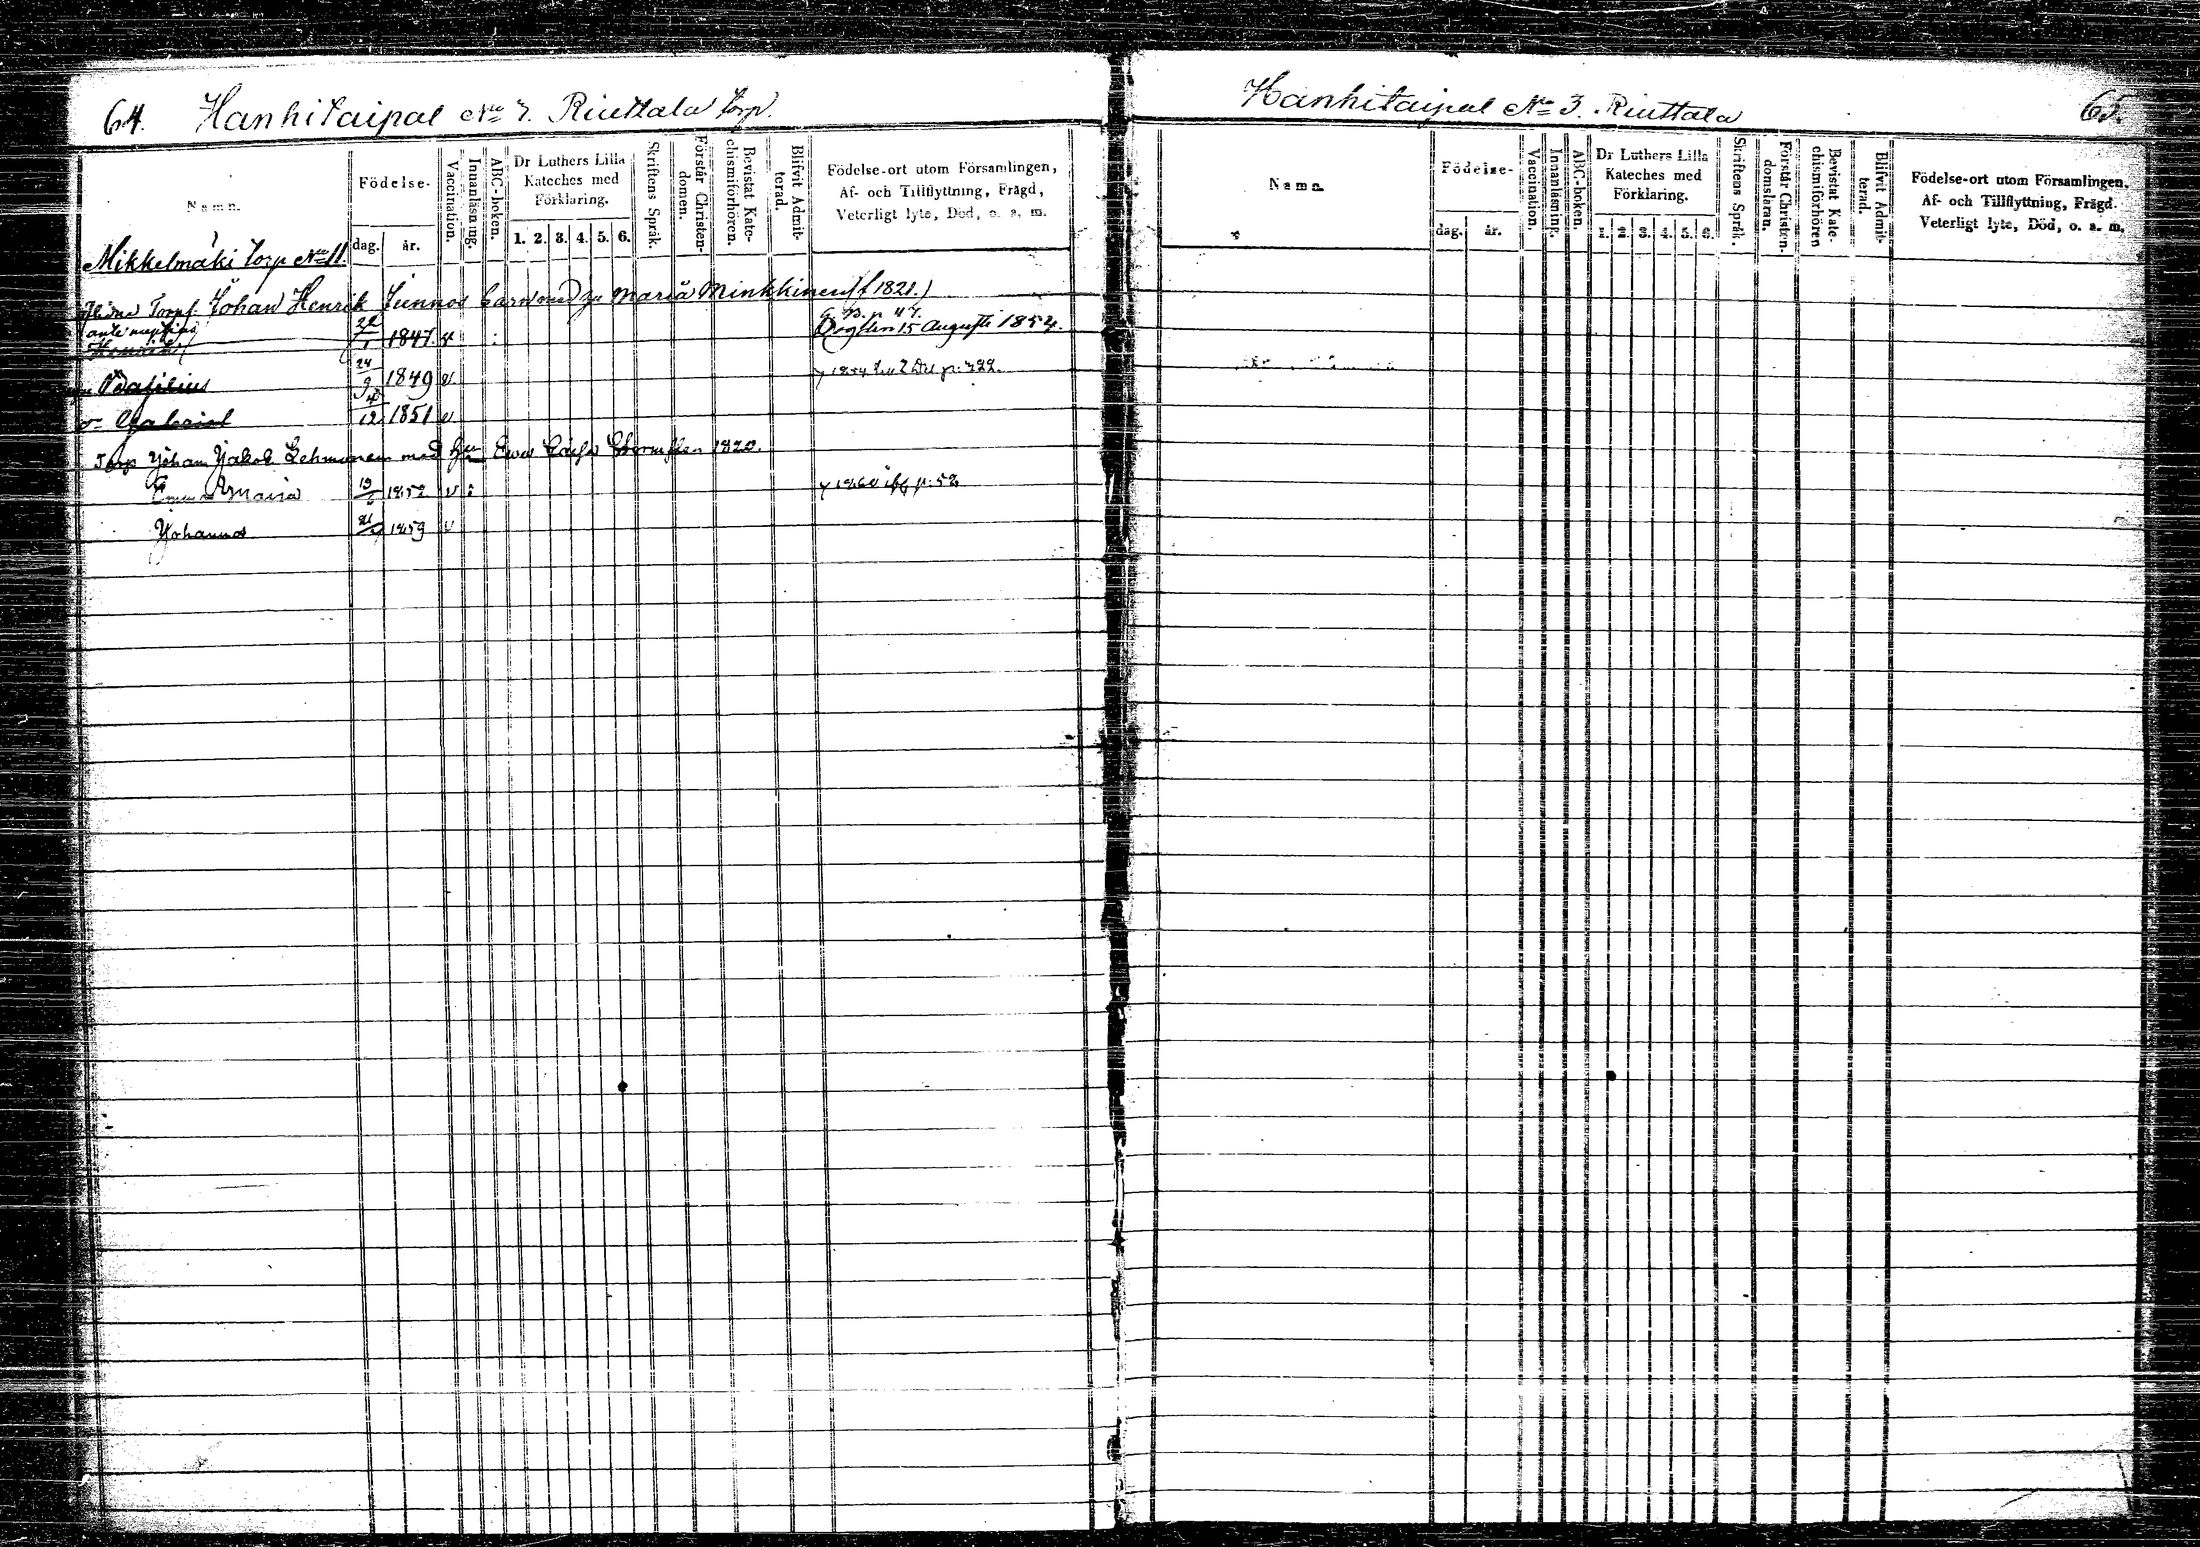 64. Hanhitaipal No 3. Riuttala torp.
Namn.
Födelse-
dag. år.
Vaccination.
Innanläsning.
ABC-boken.
Dr Luthers Lilla
Kateches med
Förklaring.
1. 2. 3. 4. 5. 6.
Skriftens Språk.
Förstår Christen-
domen.
Bevistat Kate-
chismiförhören.
Blifvit Admit-
terad.
Födelse-ort utom Församlingen,
Af- och Tillflyttning, Frägd,
Veterligt lyte, Död, o. s. m.
Mikkelmäki torp No 11.
Torpf. Johan Henrik Junnos barn med Maria Minkkinen (f 1821.)
ante nuptias
Henrik 1847. v Augusti 1854.
24/9 1849 v
Gabriel 12 1851 v
Torp Johan Jakob Lehmonen med hu Ewa 1820.
Maria 19 1852 v p. 52
Johannes 21 1859 v
Hanhitaipal No 3. Riuttala 65.
Namn.
Födelse-
dag. år.
Vaccination.
Innanläsning.
ABC-boken.
Dr Luthers Lilla
Kateches med
Förklaring.
1. 2. 3. 4. 5. 6.
Skriftens Språk.
Förstår Christen-
domsläran.
Bevistat Kate-
chismiförhören
Blifvit Admit-
terad.
Födelse-ort utom Församlingen,
Af- och Tillflyttning, Frägd.
Veterligt lyte, Död, o. s. m.